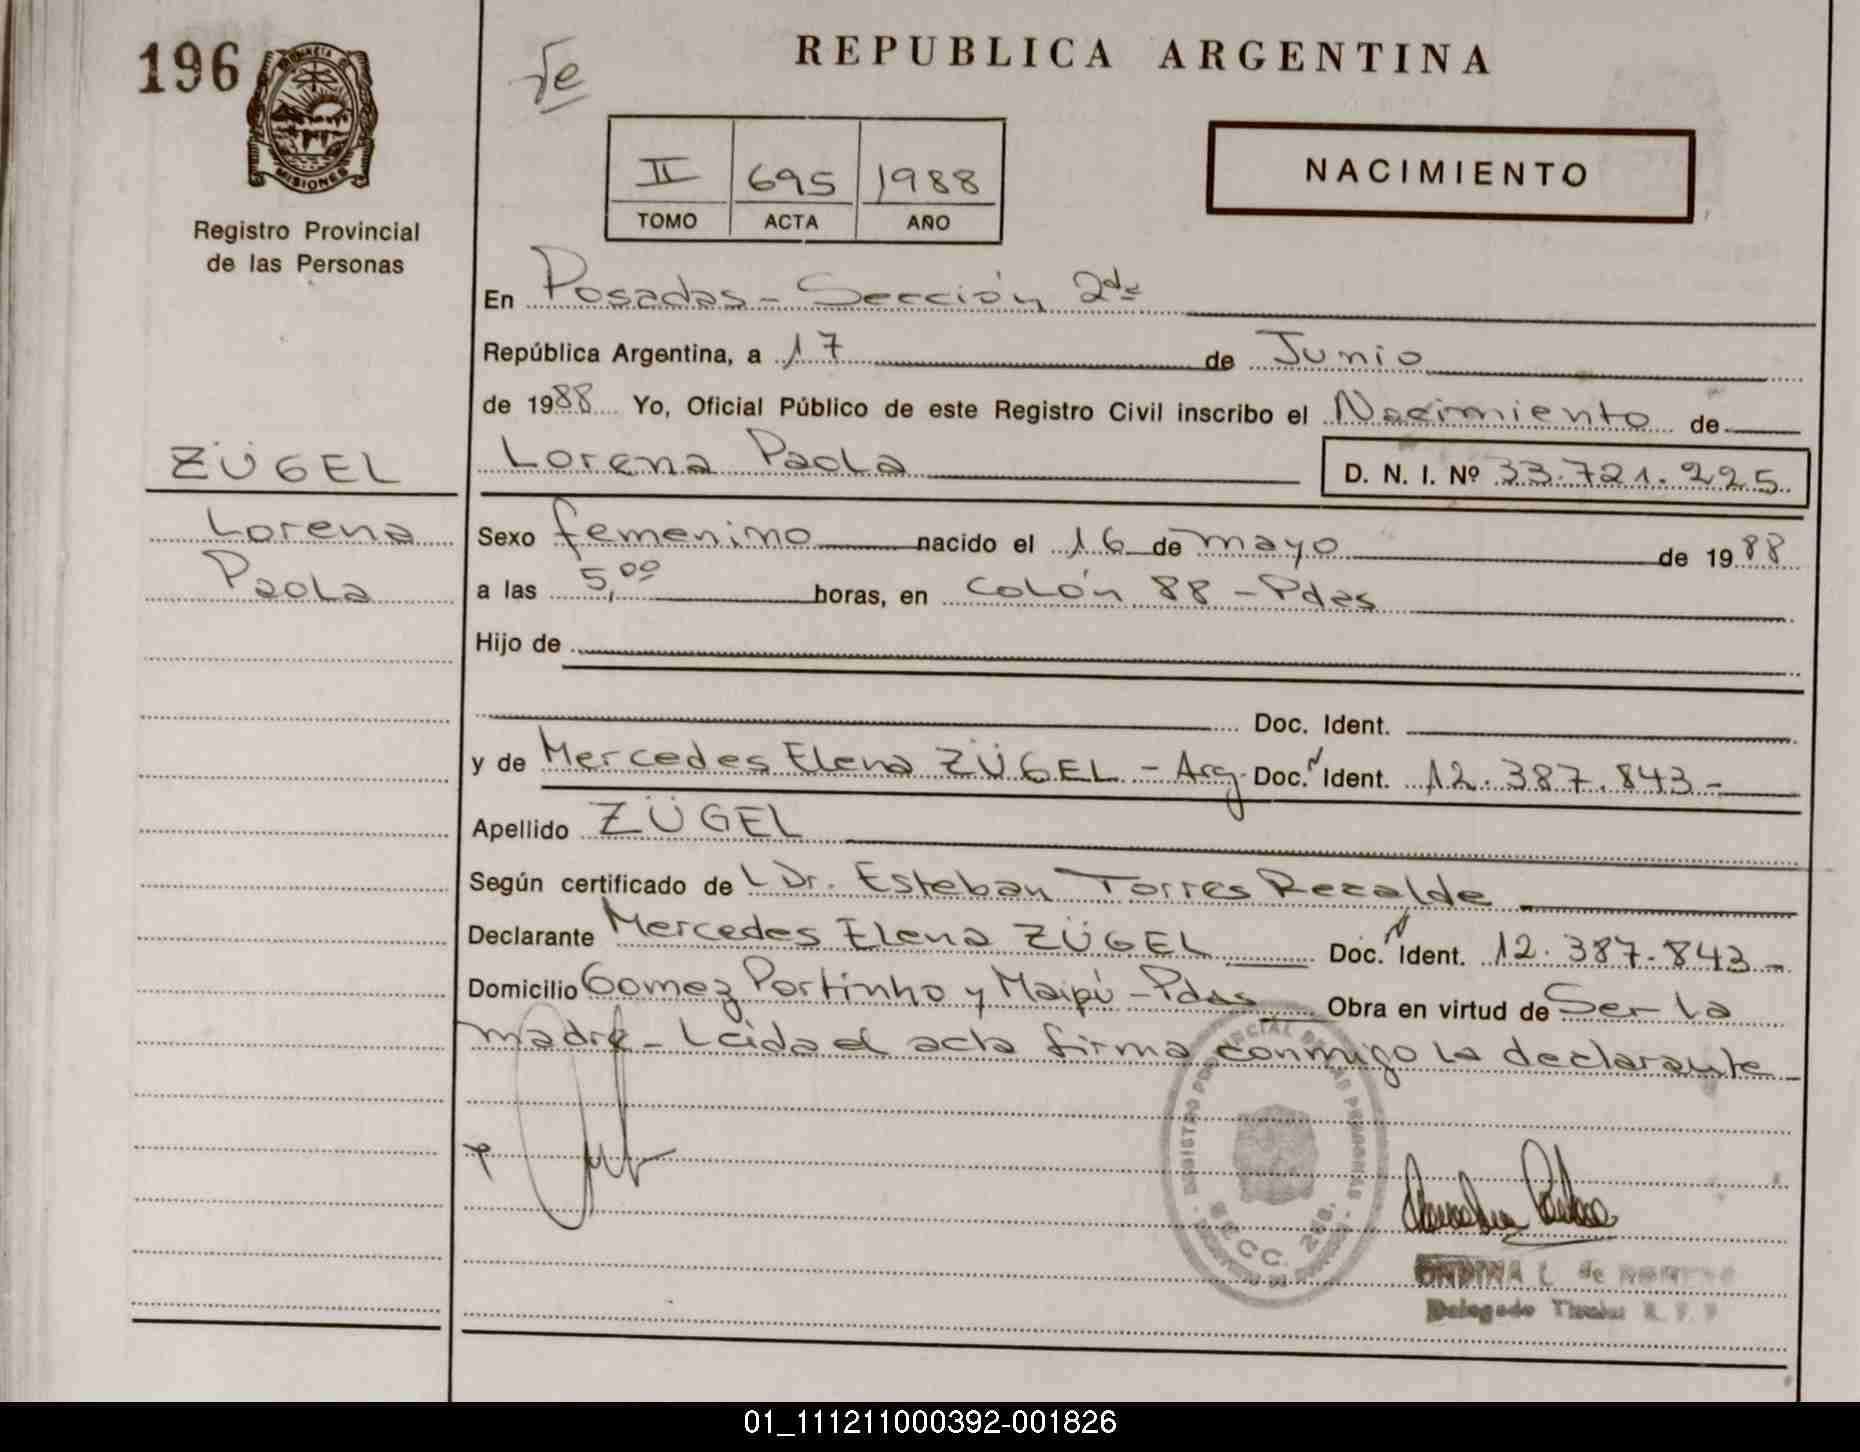 196
REPUBLICA ARGENTINA
MISIONES
Registro Provincial
de las Personas
II 695 1988
TOMO ACTA AÑO
NACIMIENTO
En Posadas - Sección 2da
República Argentina, a 17 de Junio
de 1988 Yo, Oficial Público de este Registro Civil inscribo el Nacimiento de
ZÜGEL
Lorena Paola D. N. I. Nº 33.721.225
Lorena
Paola
Sexo femenino nacido el 16 de mayo de 1988
a las 5,00 horas, en Colón 88 - Pdas
Hijo de
Doc. Ident.
y de Mercedes Elena ZÜGEL - Arg. Doc. Ident. 12.387.843-
Apellido ZÜGEL
Según certificado de L Dr. Esteban Torres Recalde
Declarante Mercedes Elena ZÜGEL Doc. Ident. 12.387.843-
Domicilio Gomez Portinho y Maipú - Pdas Obra en virtud de Ser la
madre - Leida el acta firma conmigo la declarante
REGISTRO PROVINCIAL DE LAS PERSONAS
SECC. 2da.
Delegado Titular R. P. P
01_111211000392-001826